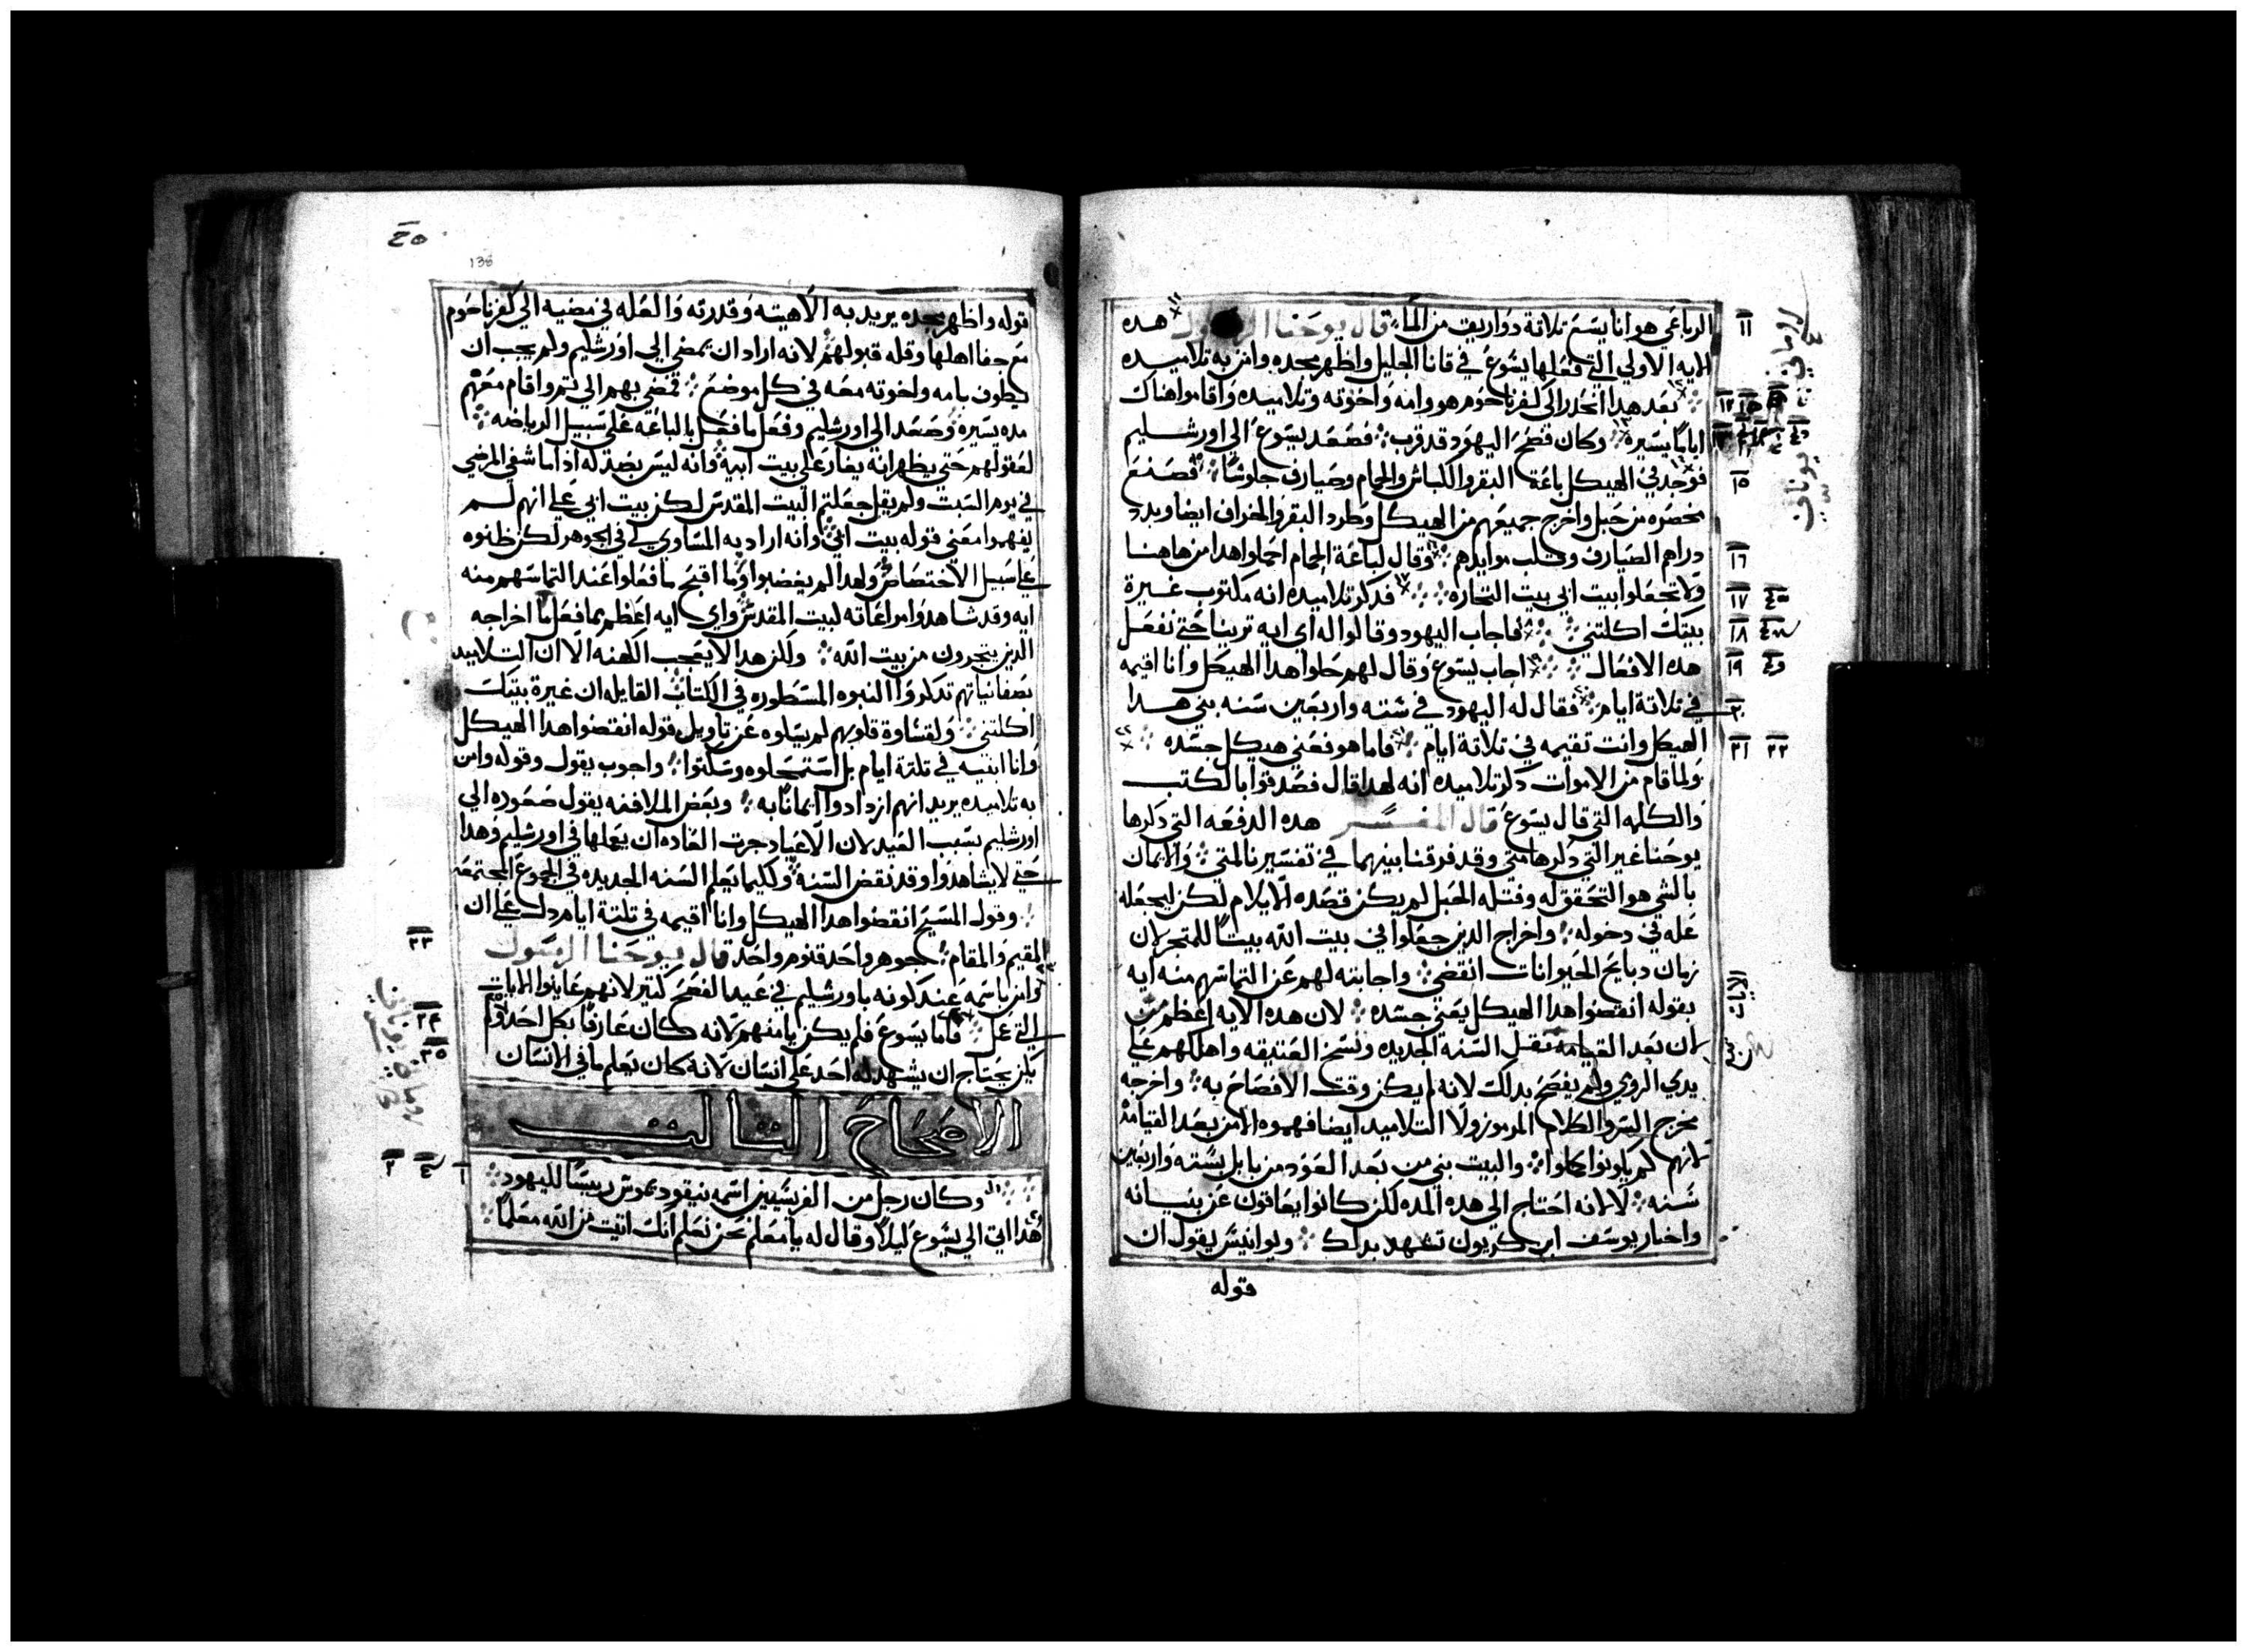 الرباعي هو انا يسع تلاتة دواريق من الماء قال يوحنا الرسول هده
الايه الاولي التي فعلها يسوع في قانا الجليل واظهر مجده وامن به تلاميده
بعد هدا انحدر الي كفرناحوم هو وامه واخوته وتلاميده واقاموا هناك
اياما يسيره وكان فصح اليهود قد قرب فصعد يسوع الي اورشليم
فوجد في الهيكل باعة البقر والكباش والحمام وصيارف جلوسا فصنع
مخصره من حبل واخرج جميعهم من الهيكل وطرد البقر والخراف ايضا وبدد
دراهم الصيارف وقلب موايدهم وقال لباعة الحمام احملوا هدا من هاهنا
ولا تجعلوا بيت ابي بيت التجاره فدكر تلاميده انه مكتوب غيرة
بيتك اكلتني فاجاب اليهود وقالوا له اي ايه ترينا حتي تفعل
هده الافعال اجاب يسوع وقال لهم حلوا هدا الهيكل وانا اقيمه
في تلاتة ايام فقال له اليهود في سته واربعين سنه بني هدا
الهيكل وانت تقيمه في تلاتة ايام فاما هو فعني هيكل جسده
ولما قام من الاموات دكر تلاميده انه لهدا قال فصدقوا بالكتب
والكلمه التي قال يسوع قال المفسر هده الدفعه التي دكرها
يوحنا غير التي دكرها متي وقد فرقنا بينهما في تفسيرنا لمتي والايمان
بالشي هو التحقق له وفتله الحبل لم يكن قصده الايلام لكن ليجعله
عله في دخوله واخراج الدين جعلوا في بيت الله بيتا للمتجر لان
زمان دبايح الحيوانات انقضي واجابته لهم عن التماسهم منه ايه
بقوله انقضوا هدا الهيكل يعني جسده لان هده الايه اعظم من
لان بعد القيامه تقبل السنه الجديده ونسخ العتيقه واهلكهم علي
يدي الروي ولم يفصح بدلك لانه لم يكن وقت الافصاح به واخرجه
مخرج السر والكلام المرموز ولا التلاميد ايضا فهموه الا من بعد القيامة
لانهم لم يكونوا كملوا والبيت بني من بعد العود من بابل بسته واربعين
سنه لا لانه احتاج الي هده المده لكن كانوا يعاقون عن بنيانه
واخبار يوسف ابن كريون تشهد بدلك ويوانيس يقول ان
قوله
قوله واظهر مجده يريد به الاهيته وقدرته والعله في مضيه الي كفرناحوم
مع جفا اهلها وقله قبولهم لانه اراد ان يمضي الي اورشليم ولم يجب ان
يطوف بامه واخوته معه في كل موضع فمضي بهم الي تم واقام معهم
مده يسيرة وصعد الي اورشليم وفعل ما فعل بالباعه علي سبيل الرياضه
لعقولهم حتي يظهر انه يغار علي بيت ابيه وانه ليس بضد له اذا ما شفي المرضي
في يوم السبت ولم يقل جعلتم البيت المقدس لكن بيت ابي علي انهم لم
يفهموا معني قوله بيت ابي وانه اراد به المساوي لي في الجوهر لكن ظنوه
علي سبيل الاختصاص ولهدا لم يغضبوا وما اقبح ما فعلوا عند التماسهم منه
ايه وقد شاهدوا مراعاته لبيت المقدس واي ايه اعظم مما فعل لما اخراجه
الدين يتجرون من بيت الله ولكن هدا لا يعجب الكهنه الا ان التلاميد
بصفا نياتهم تدكروا النبوه المسطوره في الكتاب القايله ان غيرة بيتك
اكلتني ولقساوة قلوبهم لم يسلوه عن تاويل قوله انقضوا هدا الهيكل
وانا ابنيه في تلتة ايام بل استجهلوه وسكتوا واجوب يقول وقوله وامن
به تلاميده يريد انهم ازدادوا ايمانا به وبعض الملافنه يقول صعوده الي
اورشليم بسبب العيد لان الاعياد جرت العاده ان يعملها في اورشليم وهدا
حتي لا يشاهدوا وقد نقض السنه ولكيما يعلم السنه الجديده في الجموع المجتمعه
وقول المسيح انقضوا هدا الهيكل وانا اقيمه في تلتة ايام دل علي ان
المقيم والمقام جوهر واحد قنوم واحد قال يوحنا الرسول
وامن باسمه عند كونه باورشليم في عيد الفصح كتير لانهم عاينوا الايات
التي عمل فاما يسوع فلم يكن يامنهم لانه كان عارفا بكل احد ولم
يكن يحتاج ان يشهد له احد علي انسان لانه كان يعلم ما في الانسان
الاصحاح التالت
وكان رجل من الفريسيين اسمه نيقوديموس رييسا لليهود
هدا اتي الي يسوع ليلا وقال له يا معلم نحن نعلم انك اتيت من الله معلما